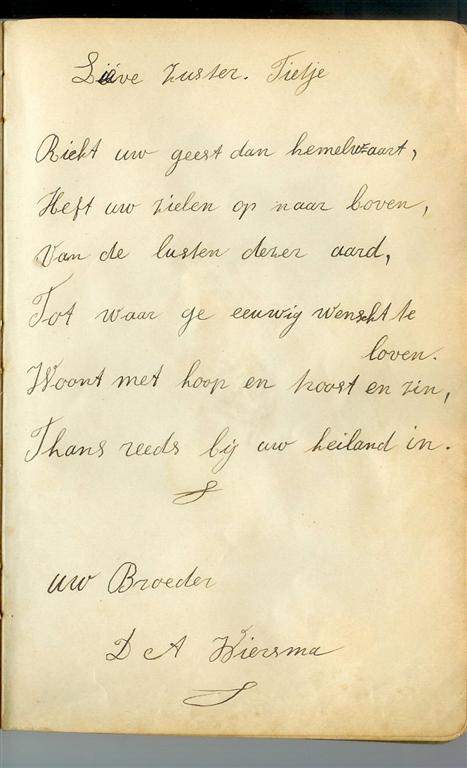 Liéve Zuster. Tietje
Richt uw geest dan hemelwaart,
Heft uw zielen op naar boven,
Van de lusten dezer aard,
Tot waar ge eeuwig wenscht te
loven.
Woont met hoop en troost en zin,
Thans reeds bij uw heiland in.
uw Broeder
D A Wiersma